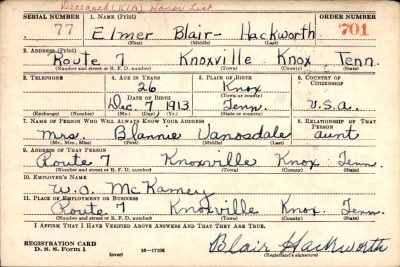 Deceased (KIA) Honor List
SERIAL NUMBER 1. NAME (Print) ORDER NUMBER
77 Elmer Blair- Hackworth 701
(First) (Middle) (Last)
2. ADDRESS (Print)
Route 7 Knoxville Knox Tenn.
(Number and street or R. F. D. number) (Town) (County) (State)
3. TELEPHONE 4. AGE IN YEARS 5. PLACE OF BIRTH 6. COUNTRY OF CITIZENSHIP
26 Knox
DATE OF BIRTH (Town or county)
Dec. 7, 1913 Tenn. U.S.A.
(Exchange) (Number) (Mo.) (Day) (Yr.) (State or country)
7. NAME OF PERSON WHO WILL ALWAYS KNOW YOUR ADDRESS 8. RELATIONSHIP OF THAT PERSON
Mrs. Blannie Vanosdale aunt
(Mr., Mrs., Miss) (First) (Middle) (Last)
9. ADDRESS OF THAT PERSON
Route 7 Knoxville Knox Tenn.
(Number and street or R. F. D. number) (Town) (County) (State)
10. EMPLOYER'S NAME
W.O. McKamey
11. PLACE OF EMPLOYMENT OR BUSINESS
Route 7 Knoxville Knox. Tenn.
(Number and street or R. F. D. number) (Town) (County) (State)
I AFFIRM THAT I HAVE VERIFIED ABOVE ANSWERS AND THAT THEY ARE TRUE.
REGISTRATION CARD
D. S. S. Form 1 16—17105 Blair Hackworth
(over) (Registrant's signature)